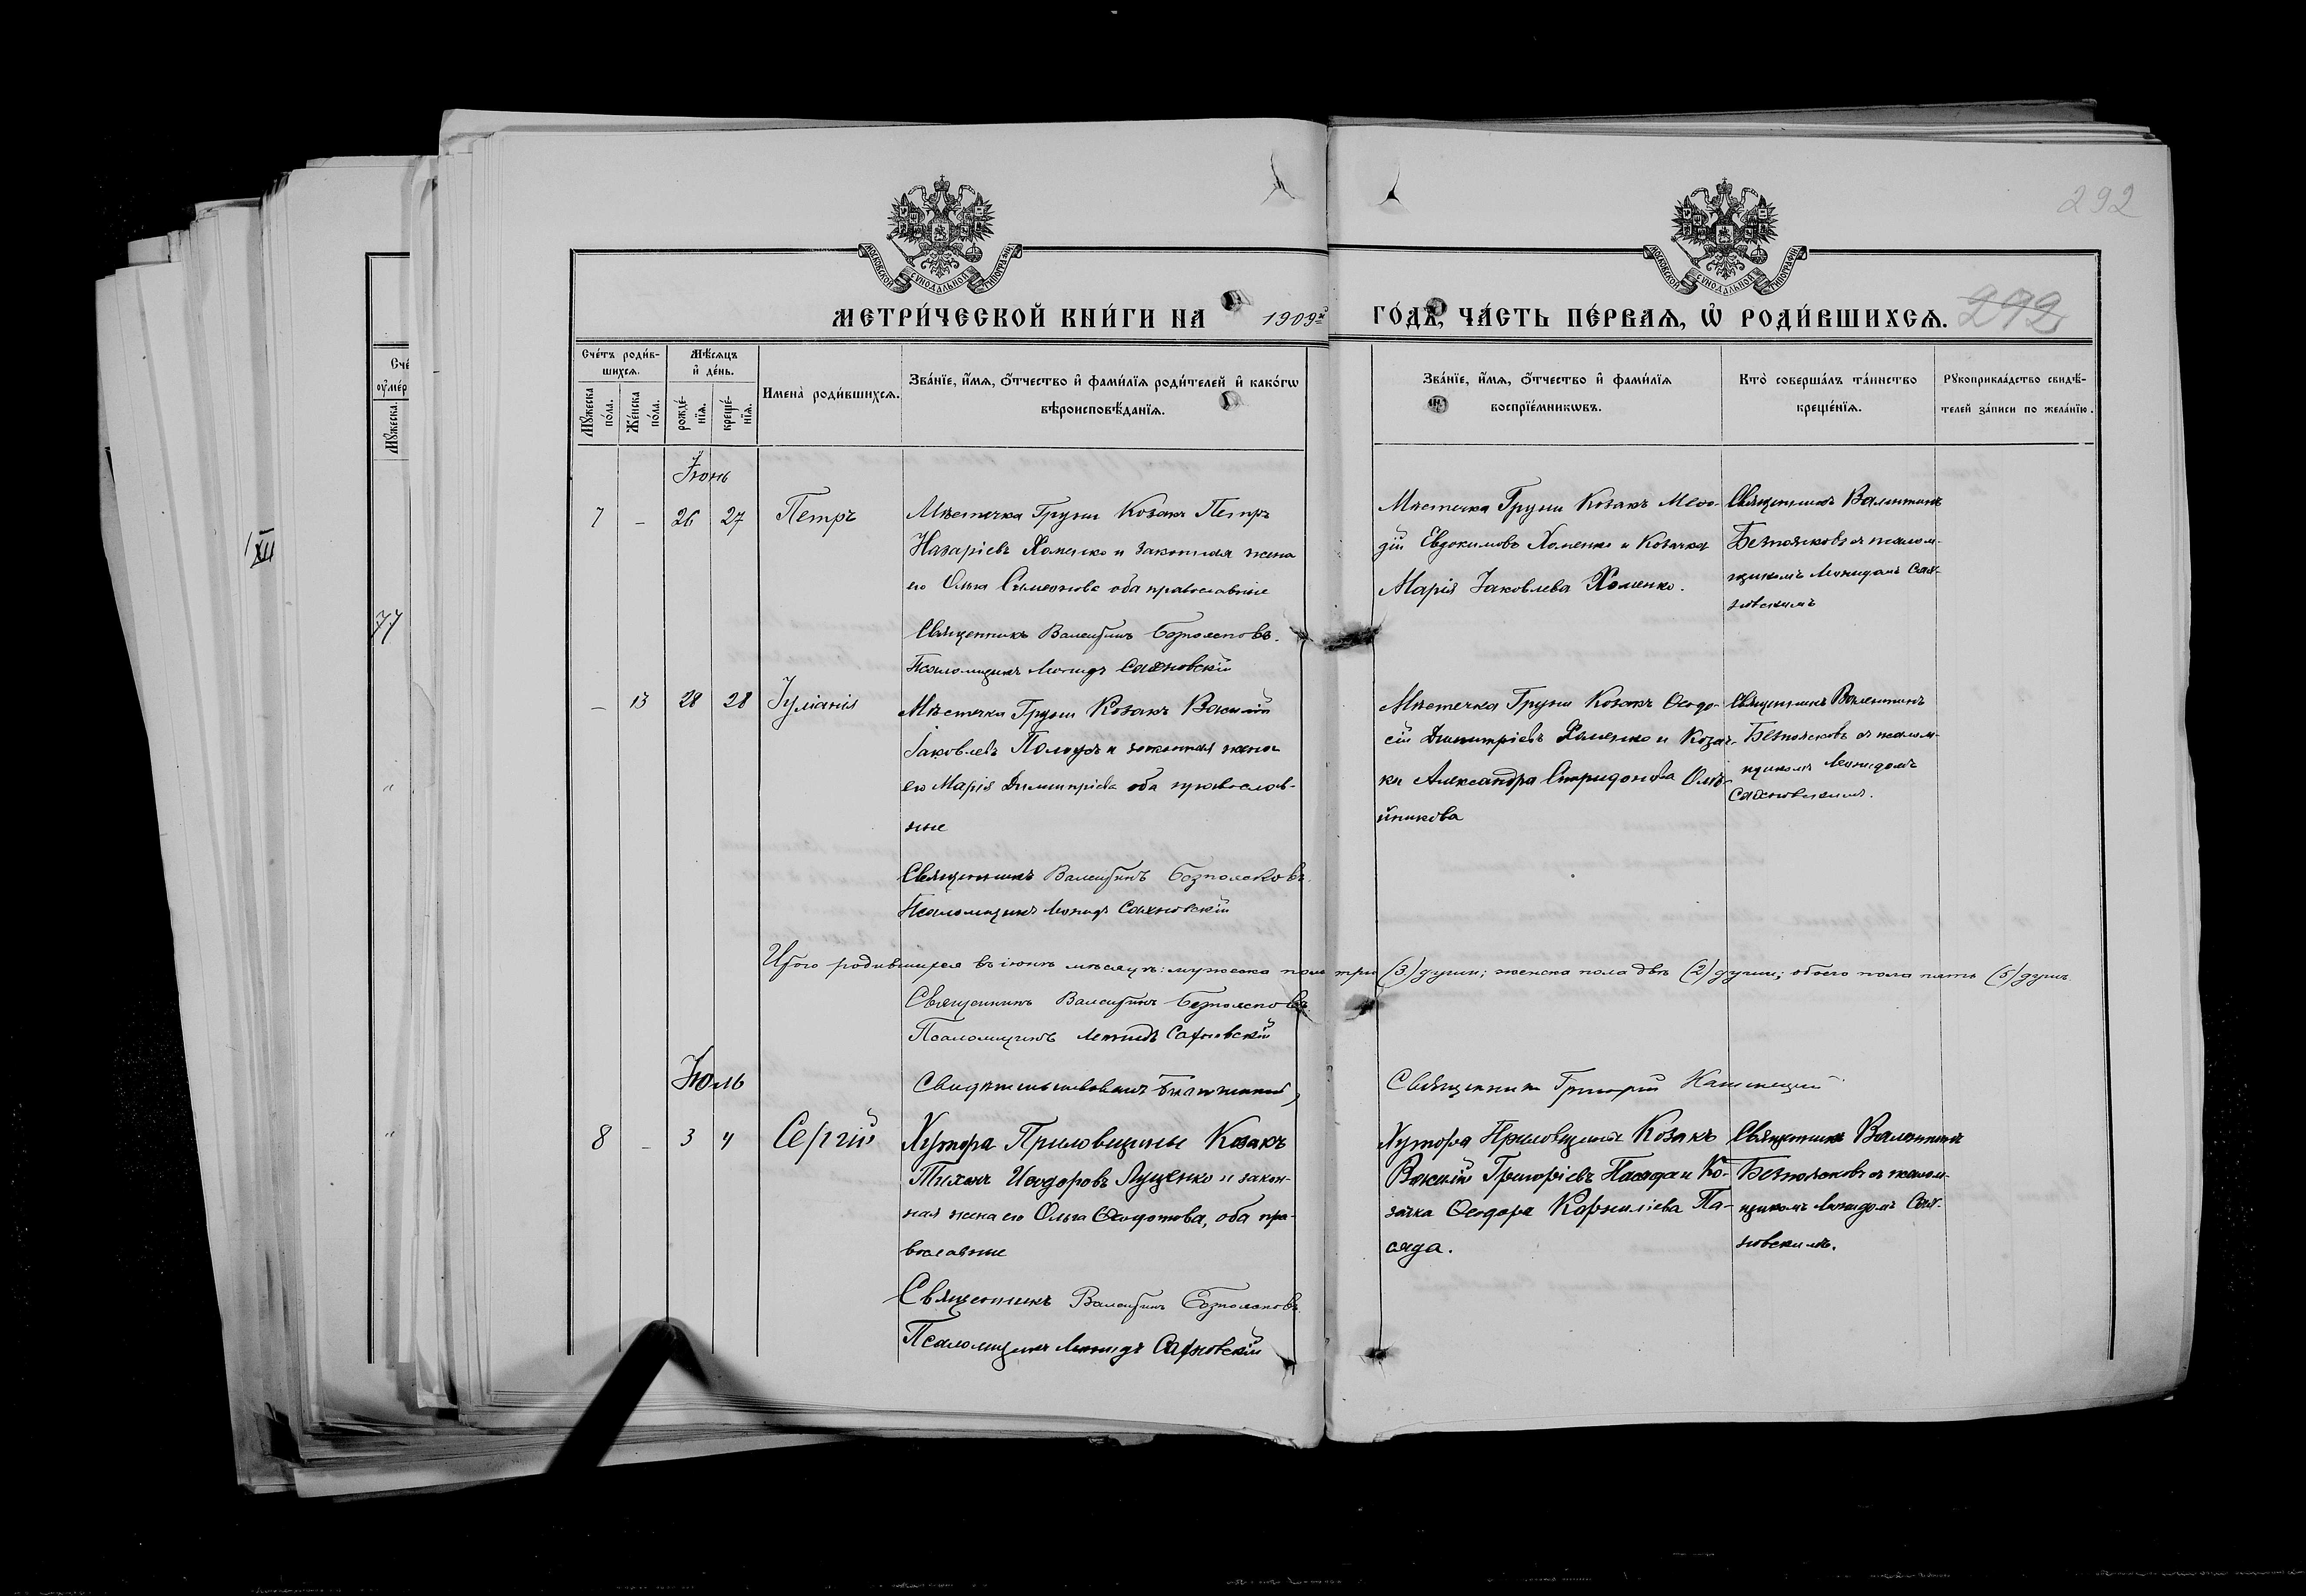 292
МОСКОВСКОЙ СУНОДАЛЬНОЙ ТИПОГРАФІИ
МОСКОВСКОЙ СУНОДАЛЬНОЙ ТИПОГРАФІИ
МЕТРИ́ЧЕСКОЙ КНИ́ГИ НА 1909й ГО́ДЪ, ЧА́СТЬ ПЕ́РВАѦ, Ѽ РОДИ́ВШИХСѦ. 292
Сче́тъ роди́в-
шихсѧ.
Мѣ́сѧцъ
и҆ де́нь.
Мꙋ́жеска
по́ла.
Же́нска
по́ла.
рожде́-
нїѧ.
креще́-
нїѧ.
Имена̀ роди́вшихсѧ.
Зва́нїе, и҆́мѧ, о҆́тчество и҆ фами́лїѧ роди́телей и҆ како́гѡ
вѣроисповѣ́данїѧ.
Зва́нїе, и҆́мѧ, о҆́тчество и҆ фами́лїѧ
воспрїе́мникѡвъ.
Кто̀ соверша́лъ та́инство
креще́нїѧ.
Рꙋкоприкла́дство свидѣ́-
телей за́писи по жела́нїю.
Сче
оуме́р
Мꙋ́жеска
XII
77
Іюнь
7 - 26 27 Петръ
Мѣстечка Груни Козакъ Петръ
Назаріевъ Хоменко и законная жена
его Ольга Симеонова оба православные
Священникъ Валентинъ Безполсковъ.
Псаломщикъ Леонидъ Сахновскій
Мѣстечка Груни Козакъ Меѳо-
дій Евдокимовъ Хоменко и Козачка
Марія Іаковлева Хоменко.
Священникъ Валентинъ
съ псалом-
щикомъ Леонидомъ Сах-
новскимъ
- 13 28 28 Іуліанія
Мѣстечка Груни Козакъ Василій
Іаковлевъ и законная жена
его Марія Димитріева оба православ-
ные
Священникъ Валентинъ Безполсковъ.
Псаломщикъ Леонидъ Сахновскій
Мѣстечка Груни Козакъ Ѳеодо-
сій Димитріевъ Хоменко и Козач-
ка Александра Спиридонова Олѣ-
йникова
Священникъ Валентинъ
съ псалом-
щикомъ Леонидомъ
Сахновскимъ.
Итого родившихся въ іюнѣ мѣсяцѣ: мужеска пола три (3) души; женска пола двѣ (2) души; обоего пола пять (5) душъ
Священникъ Валентинъ Безполсковъ.
Псаломщикъ Леонидъ Сахновскій
Іюль
Свидѣтельствовалъ Благочинный,
Священникъ Григорій
8 - 3 4 Сергій
Хутора Приловщины Козакъ
Тихонъ Ѳеодоровъ Луценко и закон-
ная жена его Ольга Ѳеодотова, оба пра-
вославные
Священникъ Валентинъ Безполсковъ.
Псаломщикъ Леонидъ Сахновскій
Хутора Приловщины Козакъ
Василій Григоріевъ Пасяда и Ко-
зачка Ѳеодора Корниліева Па-
сяда.
Священникъ Валентинъ
съ псалом-
щикомъ Леонидомъ Сах-
новскимъ.